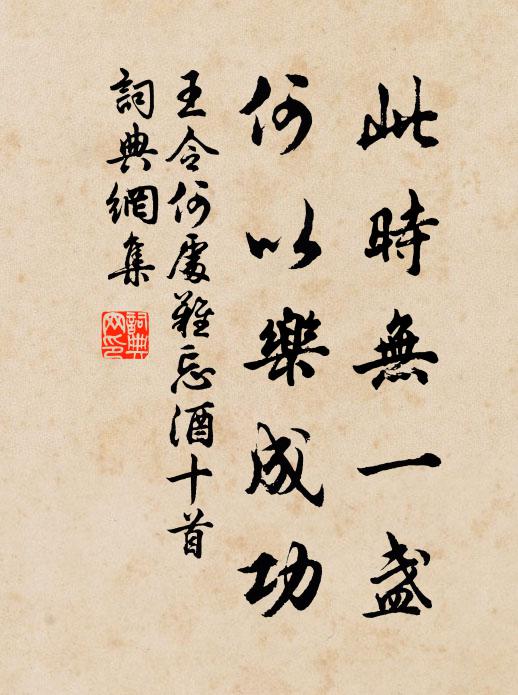 此時無一盞
何以樂成功
王令何處難忘酒十首
詞典網集
詞典網印